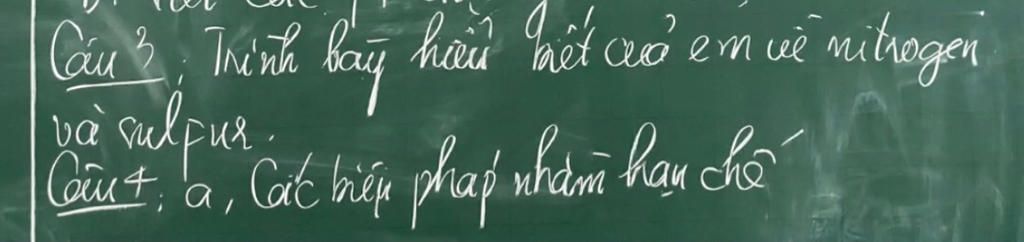 Câu 3; Trình bày hiểu biết của em về nitrogen
và sulfur.
Câu 4; a, Các biện pháp nhằm hạn chế